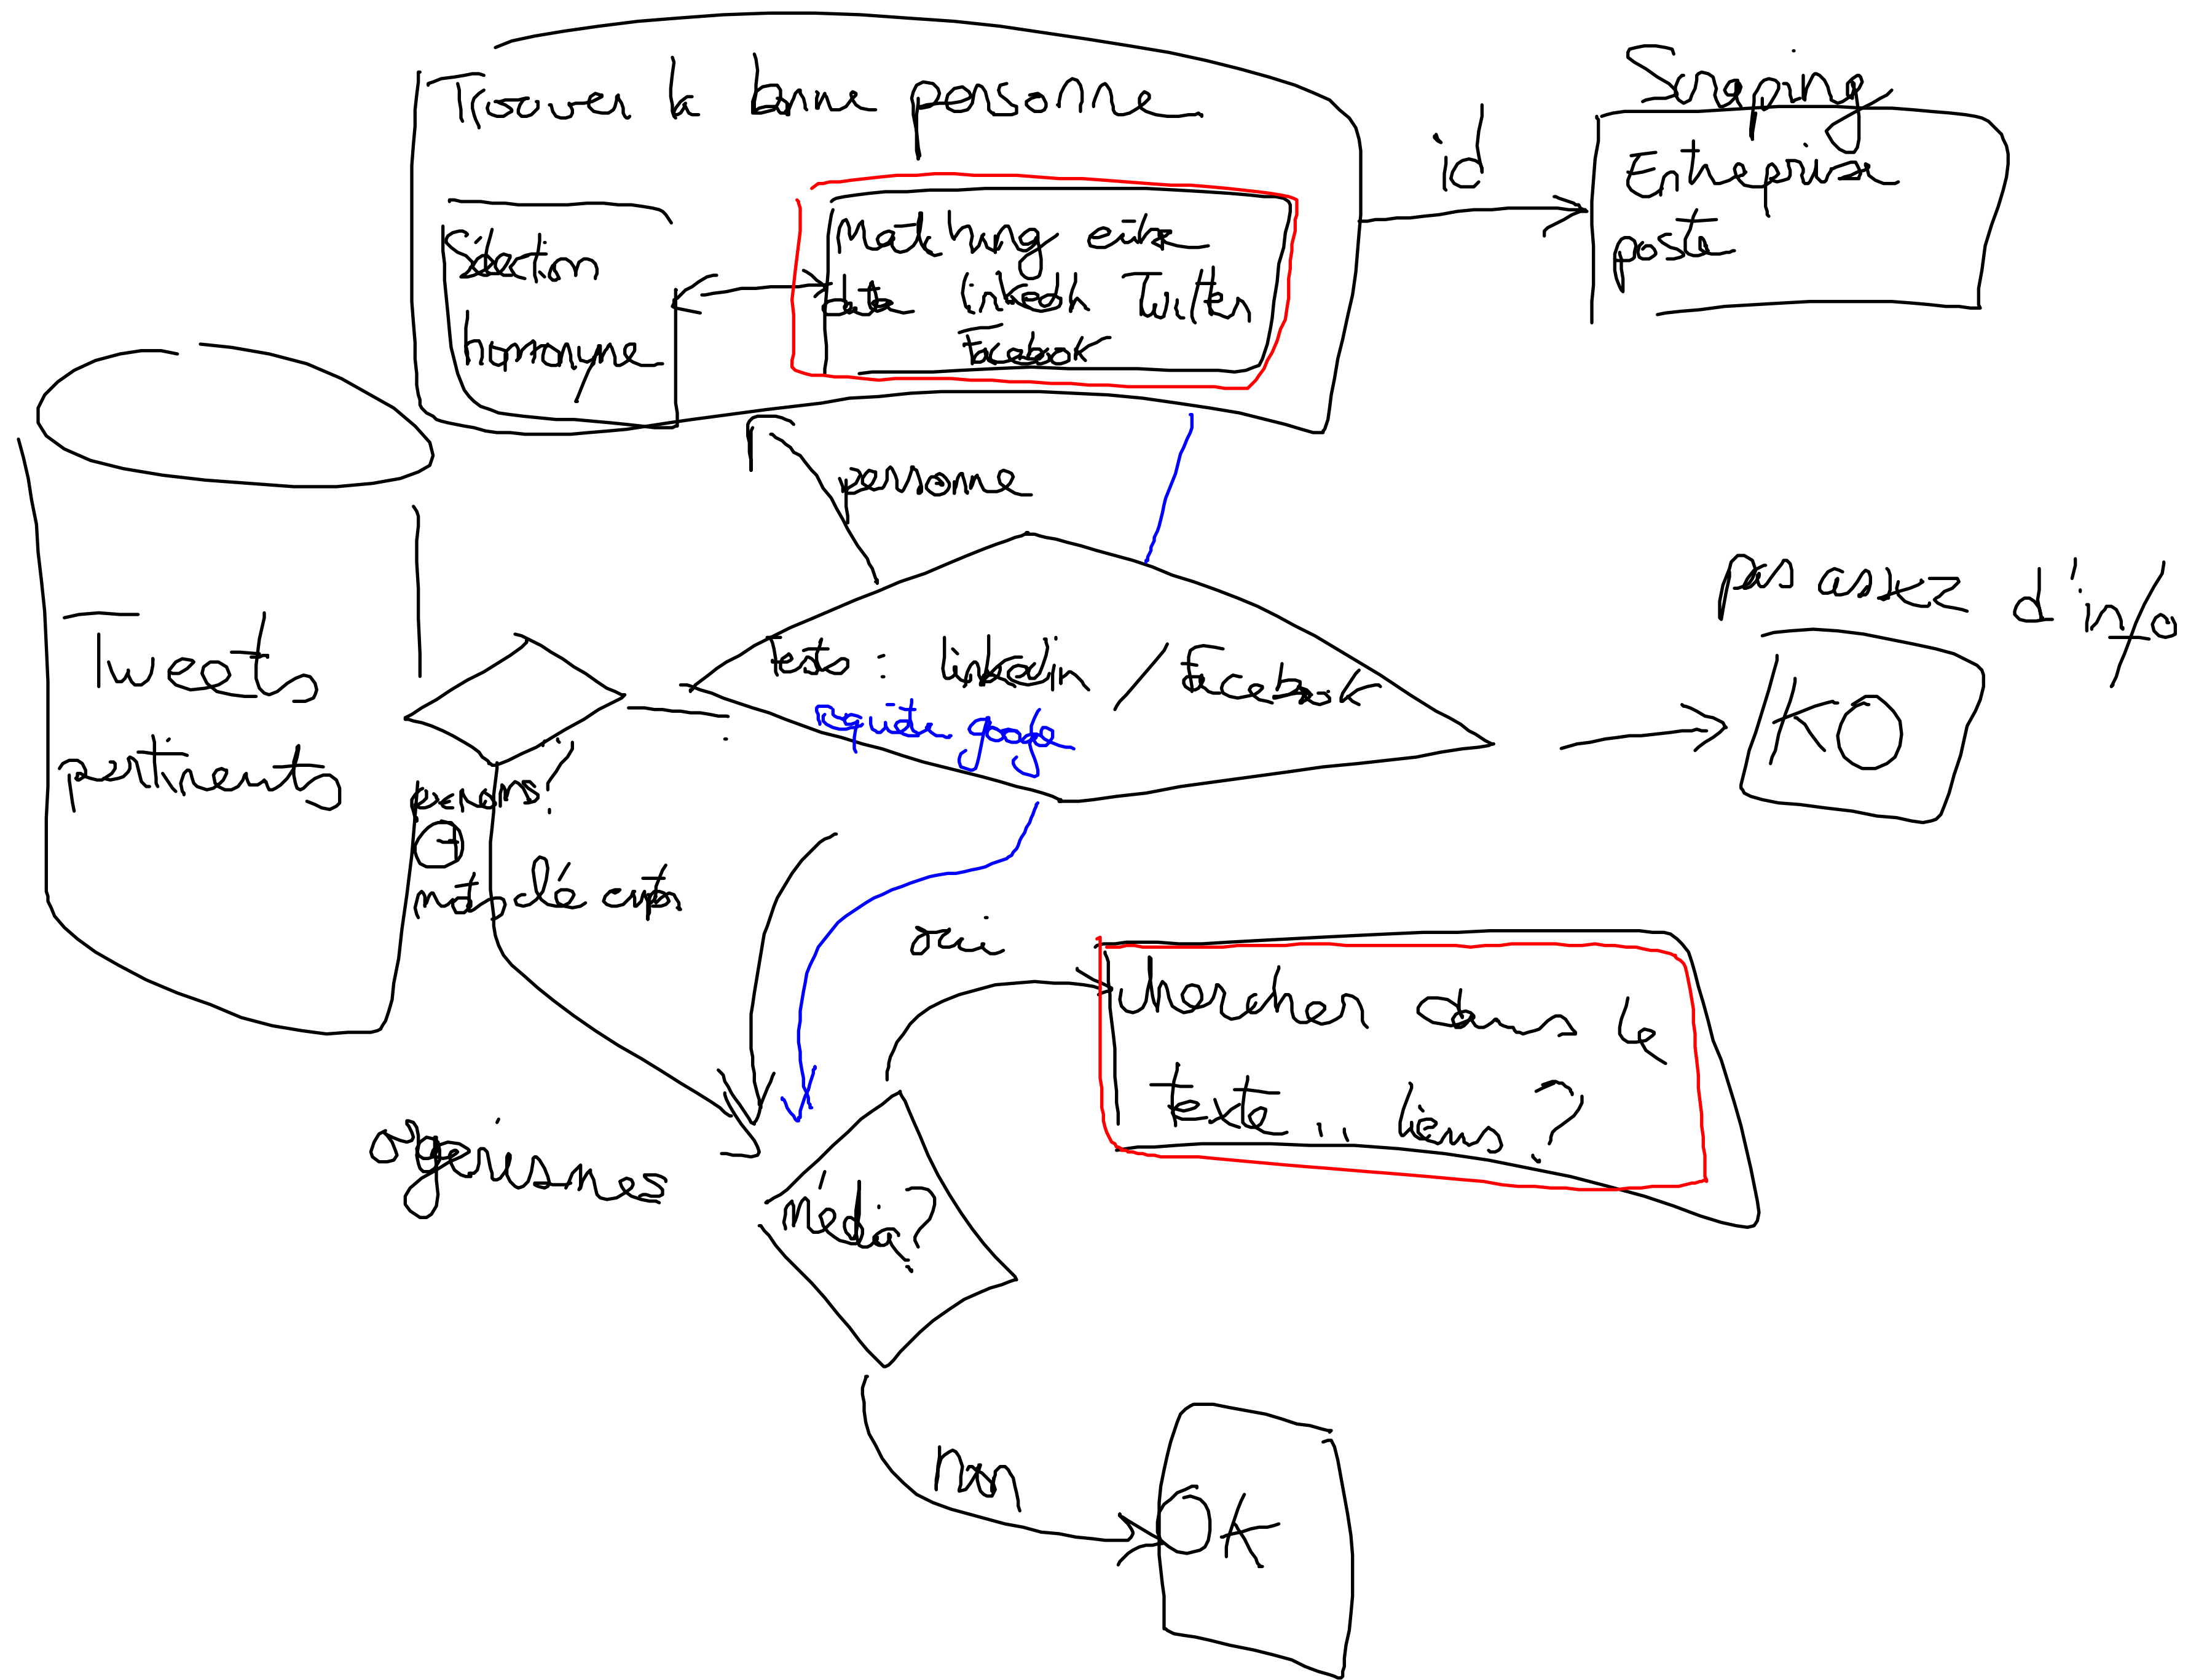 Trouver la bonne personne
Sélection
homonyme
Matching entre
data linkedin Twitter
Facebook
id
Scrapping
Entreprise
poste
personne
Tweets
pertinents
Tests : linkedin / Facebook
requête google
pas assez d'info
KO
person?
mot clé
oui
Chercher dans le
texte .. liens ?
organismes
Média?
non
OK